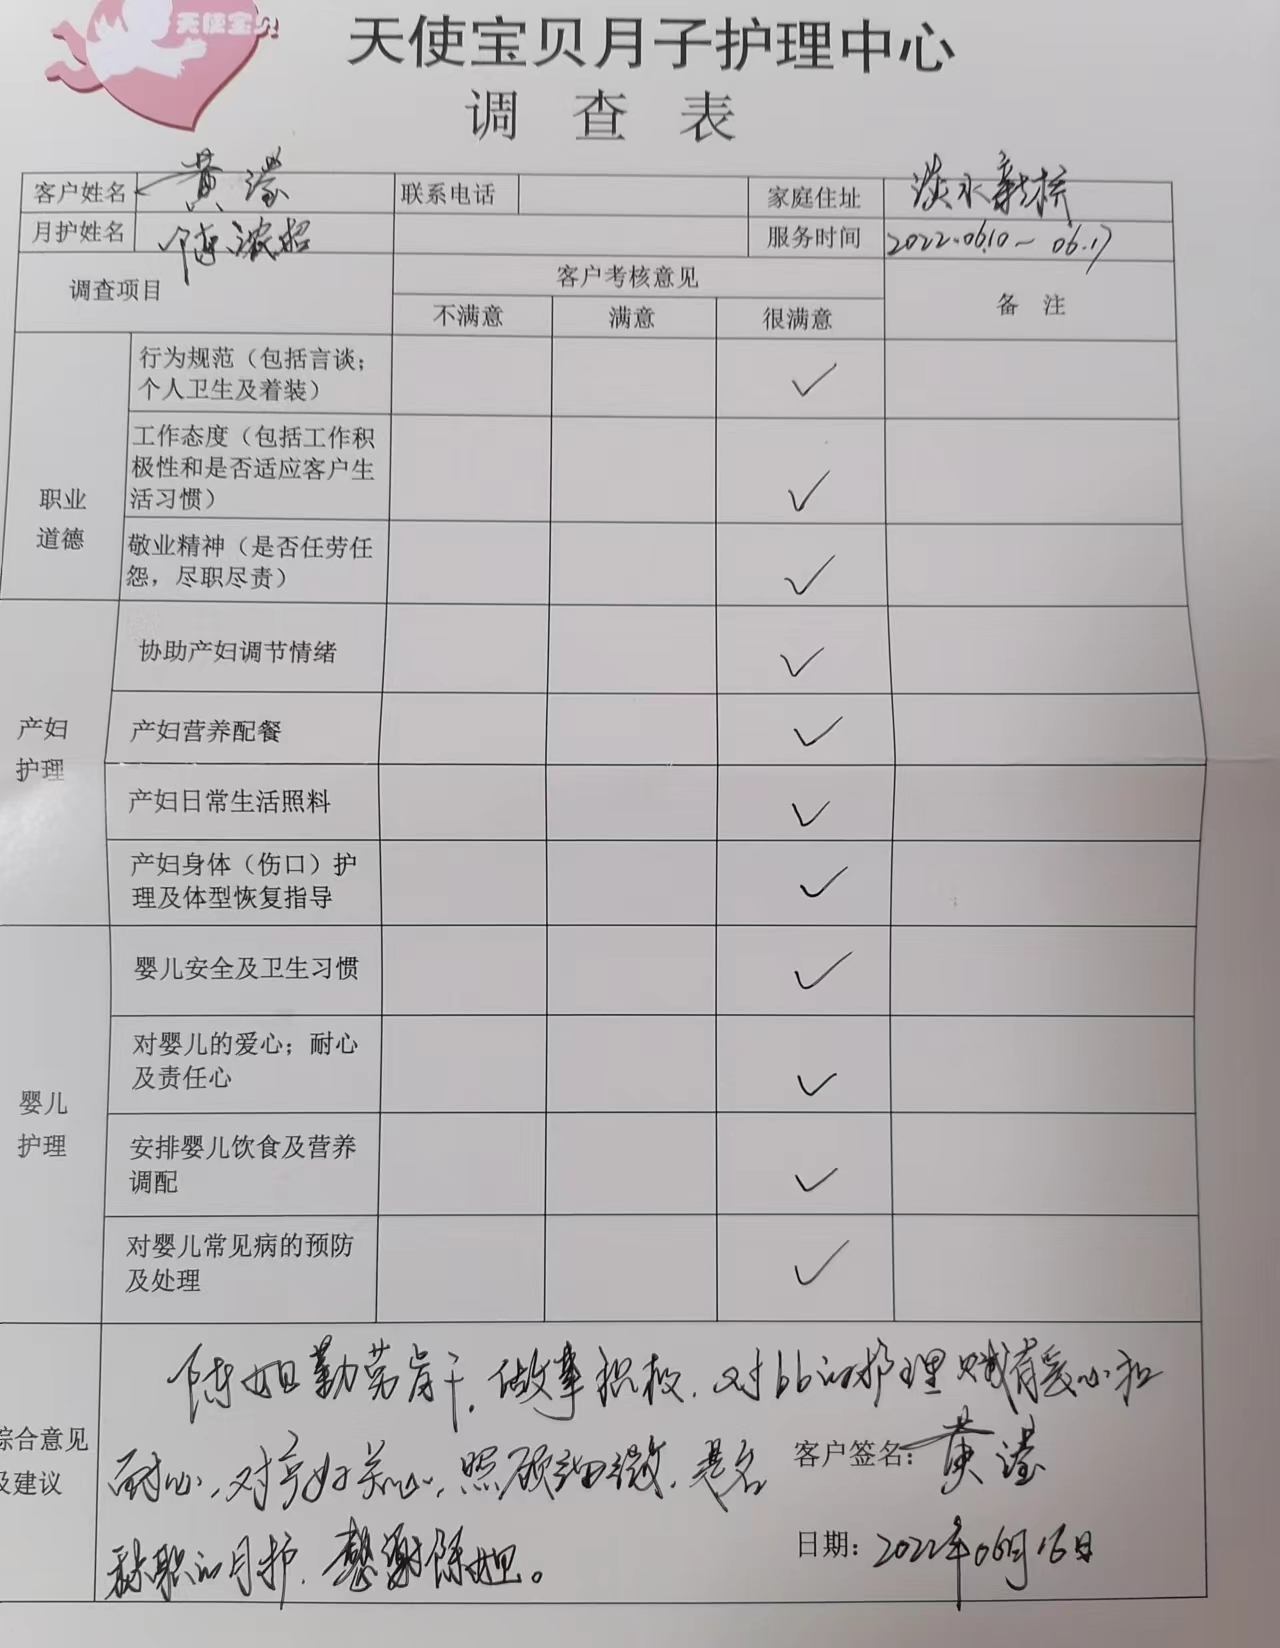 天使宝贝
天使宝贝月子护理中心
调 查 表
客户姓名 黄滢 联系电话 家庭住址 淡水新桥
月护姓名 陈 服务时间 2022.06.10~06.17
调查项目 客户考核意见 备 注
不满意 满意 很满意
职业
道德
行为规范（包括言谈；
个人卫生及着装） ✓
工作态度（包括工作积
极性和是否适应客户生
活习惯） ✓
敬业精神（是否任劳任
怨，尽职尽责） ✓
产妇
护理
协助产妇调节情绪 ✓
产妇营养配餐 ✓
产妇日常生活照料 ✓
产妇身体（伤口）护
理及体型恢复指导 ✓
婴儿
护理
婴儿安全及卫生习惯 ✓
对婴儿的爱心；耐心
及责任心 ✓
安排婴儿饮食及营养
调配 ✓
对婴儿常见病的预防
及处理 ✓
综合意见
及建议
陈姐勤劳肯干，做事积极，对bb的护理赋有爱心和
耐心，对产妇关心，照顾细微，是名
称职的月护，感谢陈姐。
客户签名：黄滢
日期：2022年06月16日